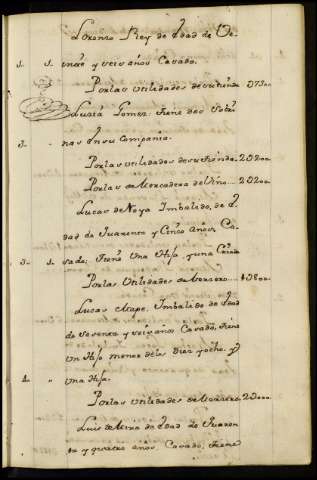 Lorenzo Rey de Edad de Ve-
1. 1. inte y seis años Casado.
Por las Utilidades de su tienda 1730..
Lucia Gomez: tiene dos Sobri
3. " nas en su Compania.
Por las utilidades de su tienda. 2200..
Por las de Mercadera de Vino... 2020..
Lucas de Noya Imbalido, de E
dad de quarenta y Cinco años, Ca-
3. 1. sado; tiene Una Hija, y una Criada
Por las Utilidades de
Lucas Imbalido de Edad
de sesenta y seis años Casado, tiene
un Hijo menor de los Diez y ocho, y
4. " una Hija.
Por las Utilidades de 2000..
Luis de Neira de Edad de quaren
ta y quatro años, Casado, tiene